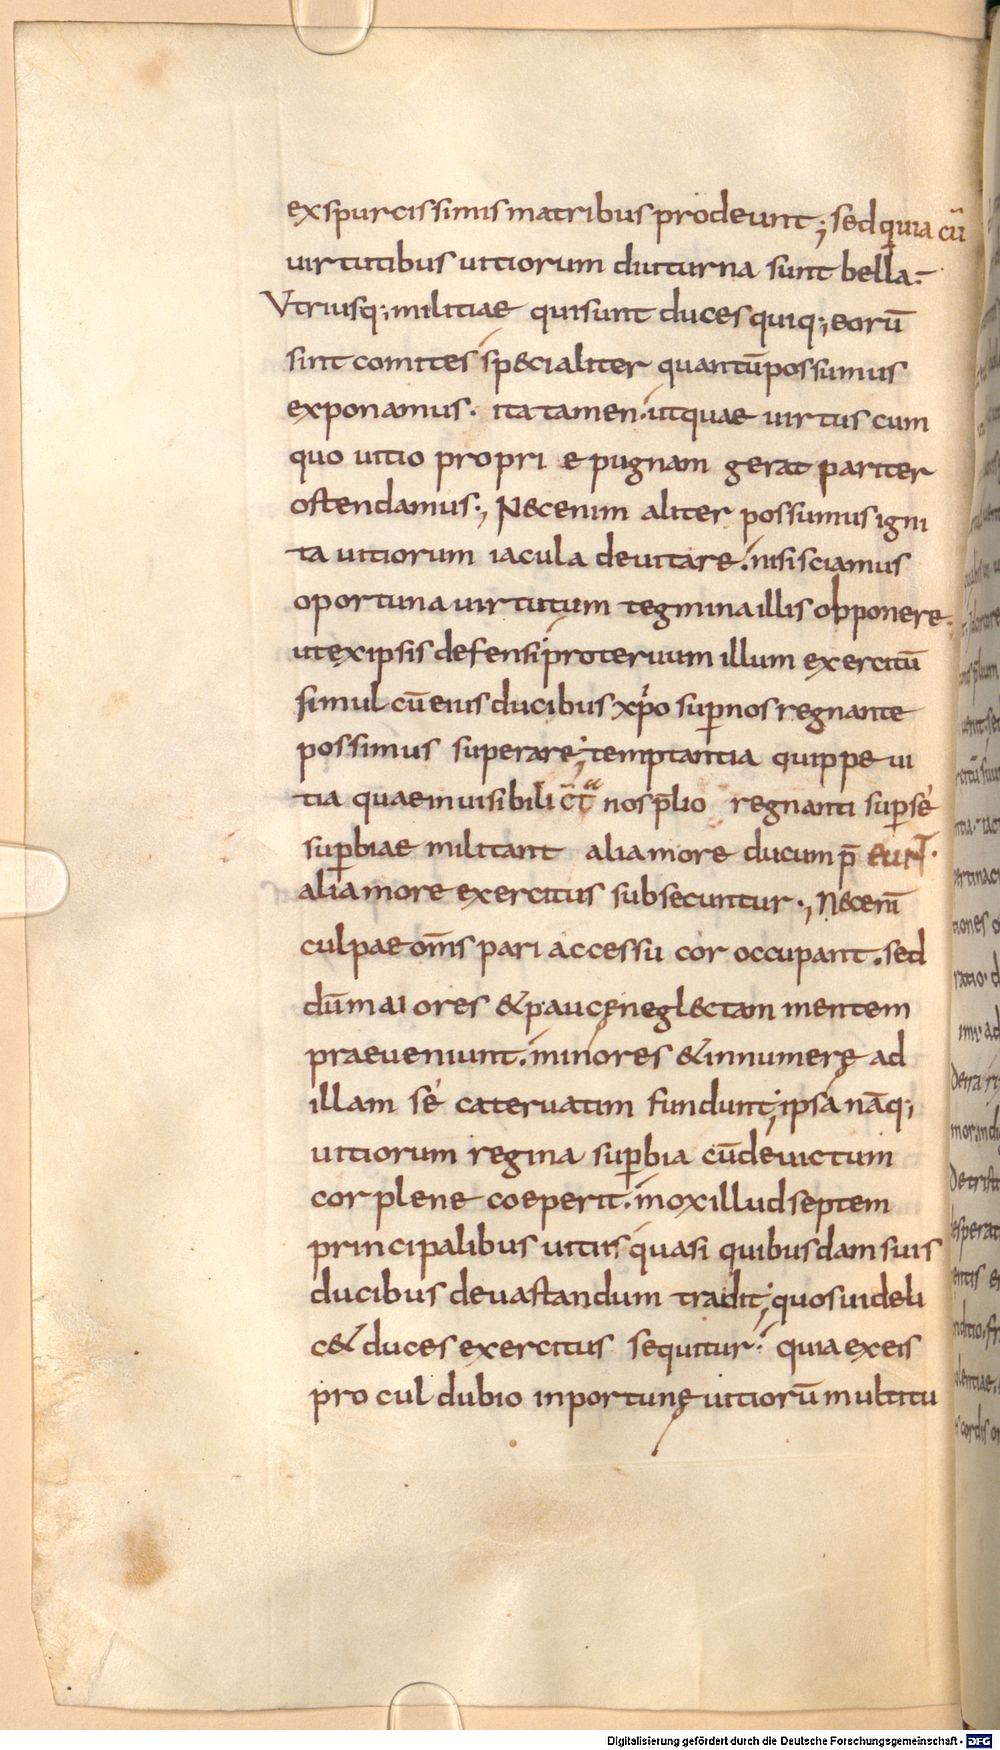 exspurcissimis matribus prodeunt; sed quia cū
uirtutibus uitiorum diuturna sunt bella.
Utriusq; militiae qui sunt duces quiq; eorū
sint comites specialiter quantū possumus
exponamus. ita tamen. ut quae uirtus cum
quo uitio propri e pugnam gerat pariter
ostendamus., Nec enim aliter possumus igni
ta uitiorum iacula deuitare. nisi sciamus
oportuna uirtutum tegmina illis opponere.
ut ex ipsis defensi proteruum illum exercitū
simul cū eius ducibus xp̄o sup̄ nos regnante
possimus superare; temptantia quippe ui
tia quae inuisibili c̄t̄a nos p̄lio regnanti sup̄ sé
sup̄biae militant alia more ducum p̄eun̄t.
alia more exercitus subsecuntur., Nec eni̅
culpae om̄s pari accessu cor occupant. sed
dū mai ores & paucę neglectam mentem
praeueniunt. minores & innumerę ad
illam sé cateruatim fundunt; ipsa nāq;
uitiorum regina sup̄bia cū deuictum
cor plene coeperit. mox illud septem
principalibus uitiis quasi quibusdam suis
ducibus deuastandum tradit; quos uideli
c& duces exercitus sequitur. quia ex eis
pro cul dubio inportunę uitiorū multitu
Digitalisierung gefördert durch die Deutsche Forschungsgemeinschaft - DFG